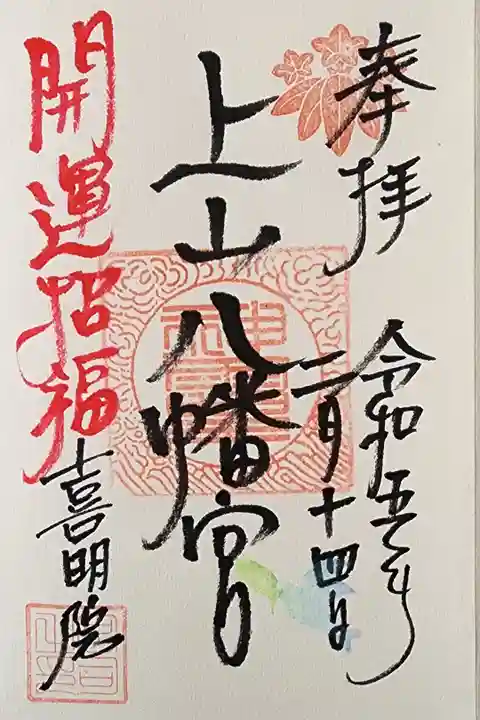 奉拝
令和五年
二月十四日
上山八幡宮
開運招福
喜明院